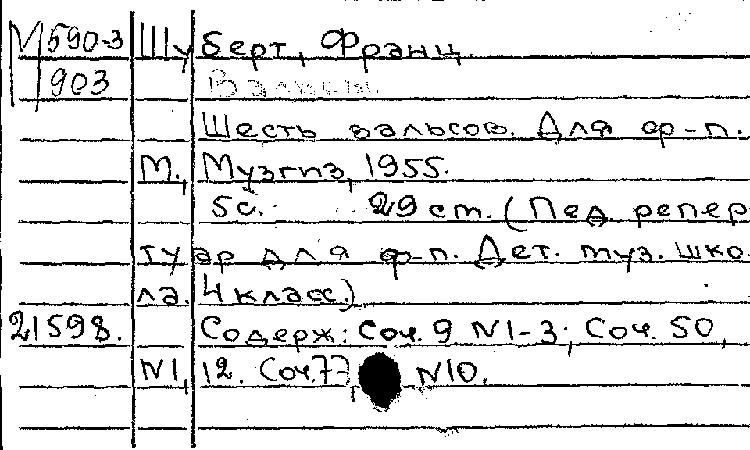 М590-3 Шуберт, Франц.
903 Вальсы.
Шесть вальсов. Для ф-п.
М., Музгиз, 1955.
5с. 29 cm. (Пед. репер
туар для ф-п. Дет. муз. шко
ла. 4 класс.)
21598. Содерж: Соч. 9 N1-3; Соч. 50,
N1, 12. Соч. 77, N10.